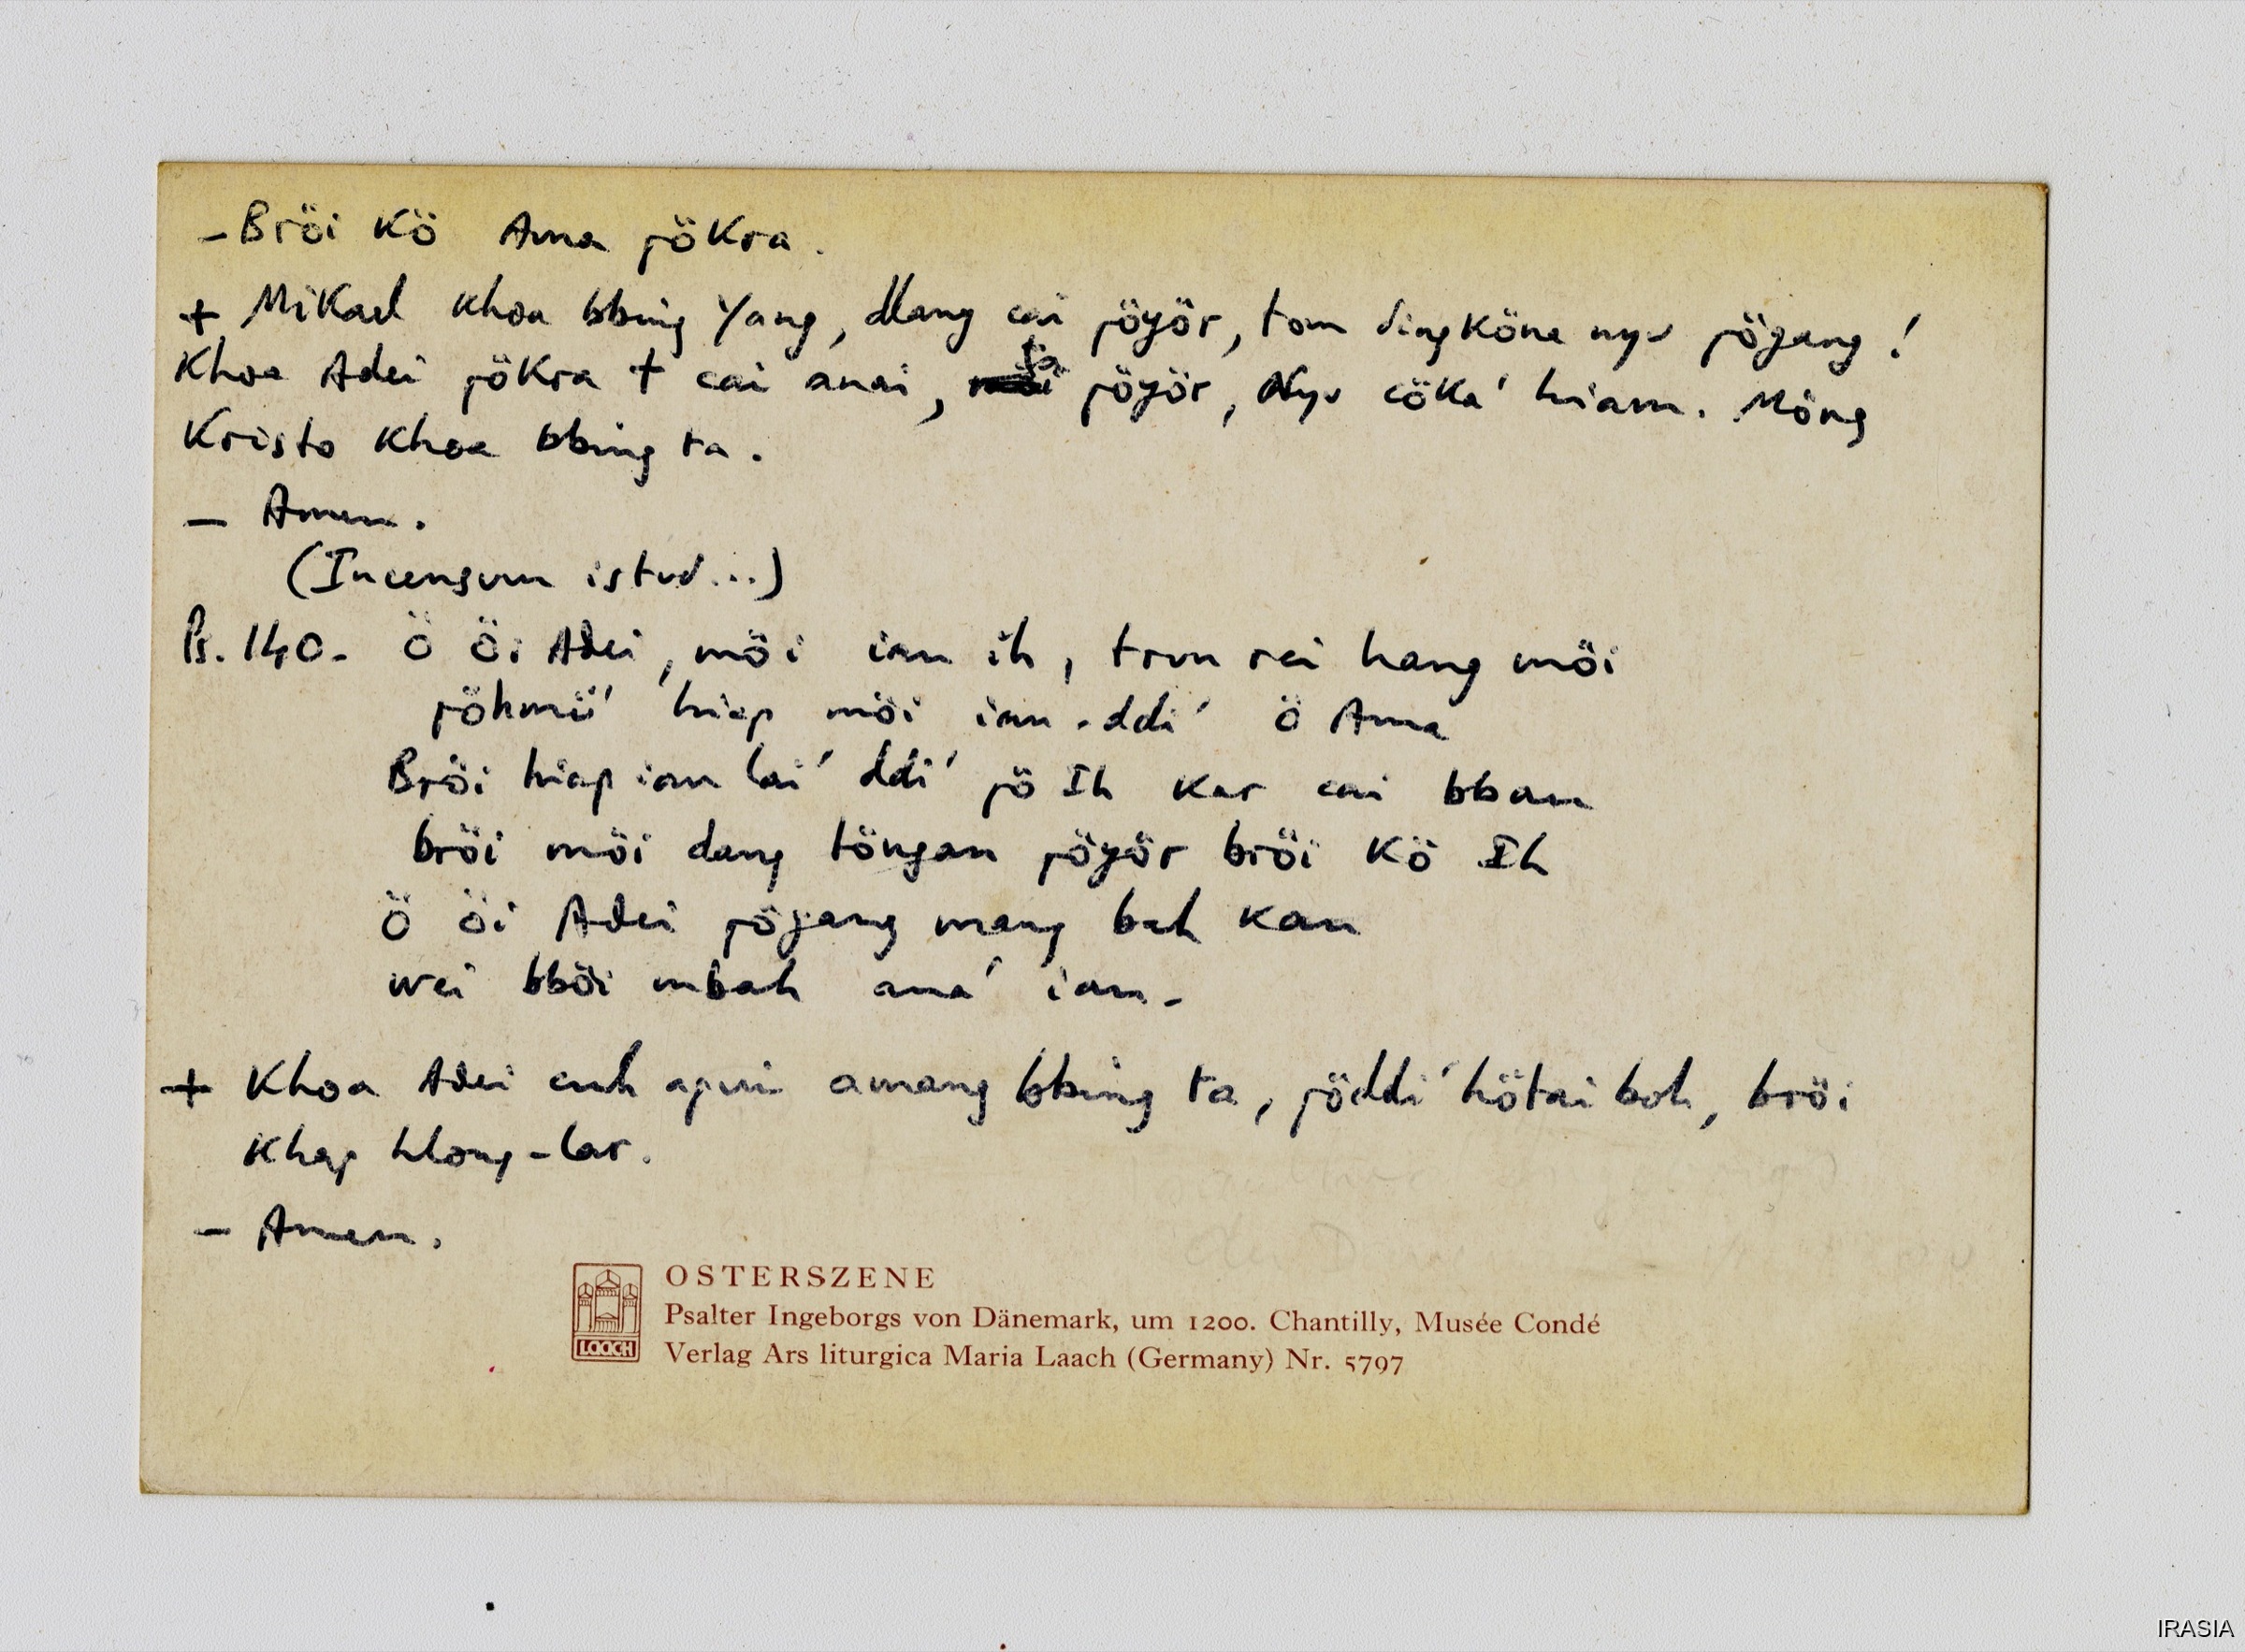 - Bröi Kö Ama pökra.
+ Mikael Khoa bbing Yang, dlang cai pöyör, tom dingköna nyu pögang!
Khoa Adei pökra + cai anai, pöyör, Nyu cöka' hiam. Möng
Kristo Khoa bbing ta.
- Amen.
(Incensum istud...)
Ps. 140. Ö Öi Adei, möi iau ih, trun rei hang möi
pöhmü' hiap möi iau-ddi' Ö Ama
Bröi hiap iau lai' ddi' pö Ih kar cai bban
bröi möi dang töngan pöyör bröi Kö Ih
Ö öi Adei pögang mang bah kau
wei bböi mbah ana' iau-
+ Khoa Adei cuh apui amang bbing ta, pöddi' hötai boh, bröi
Khap hlong-lar.
- Amen.
OSTERSZENE
Psalter Ingeborgs von Dänemark, um 1200. Chantilly, Musée Condé
Verlag Ars liturgica Maria Laach (Germany) Nr. 5797
LAACH
IRASIA